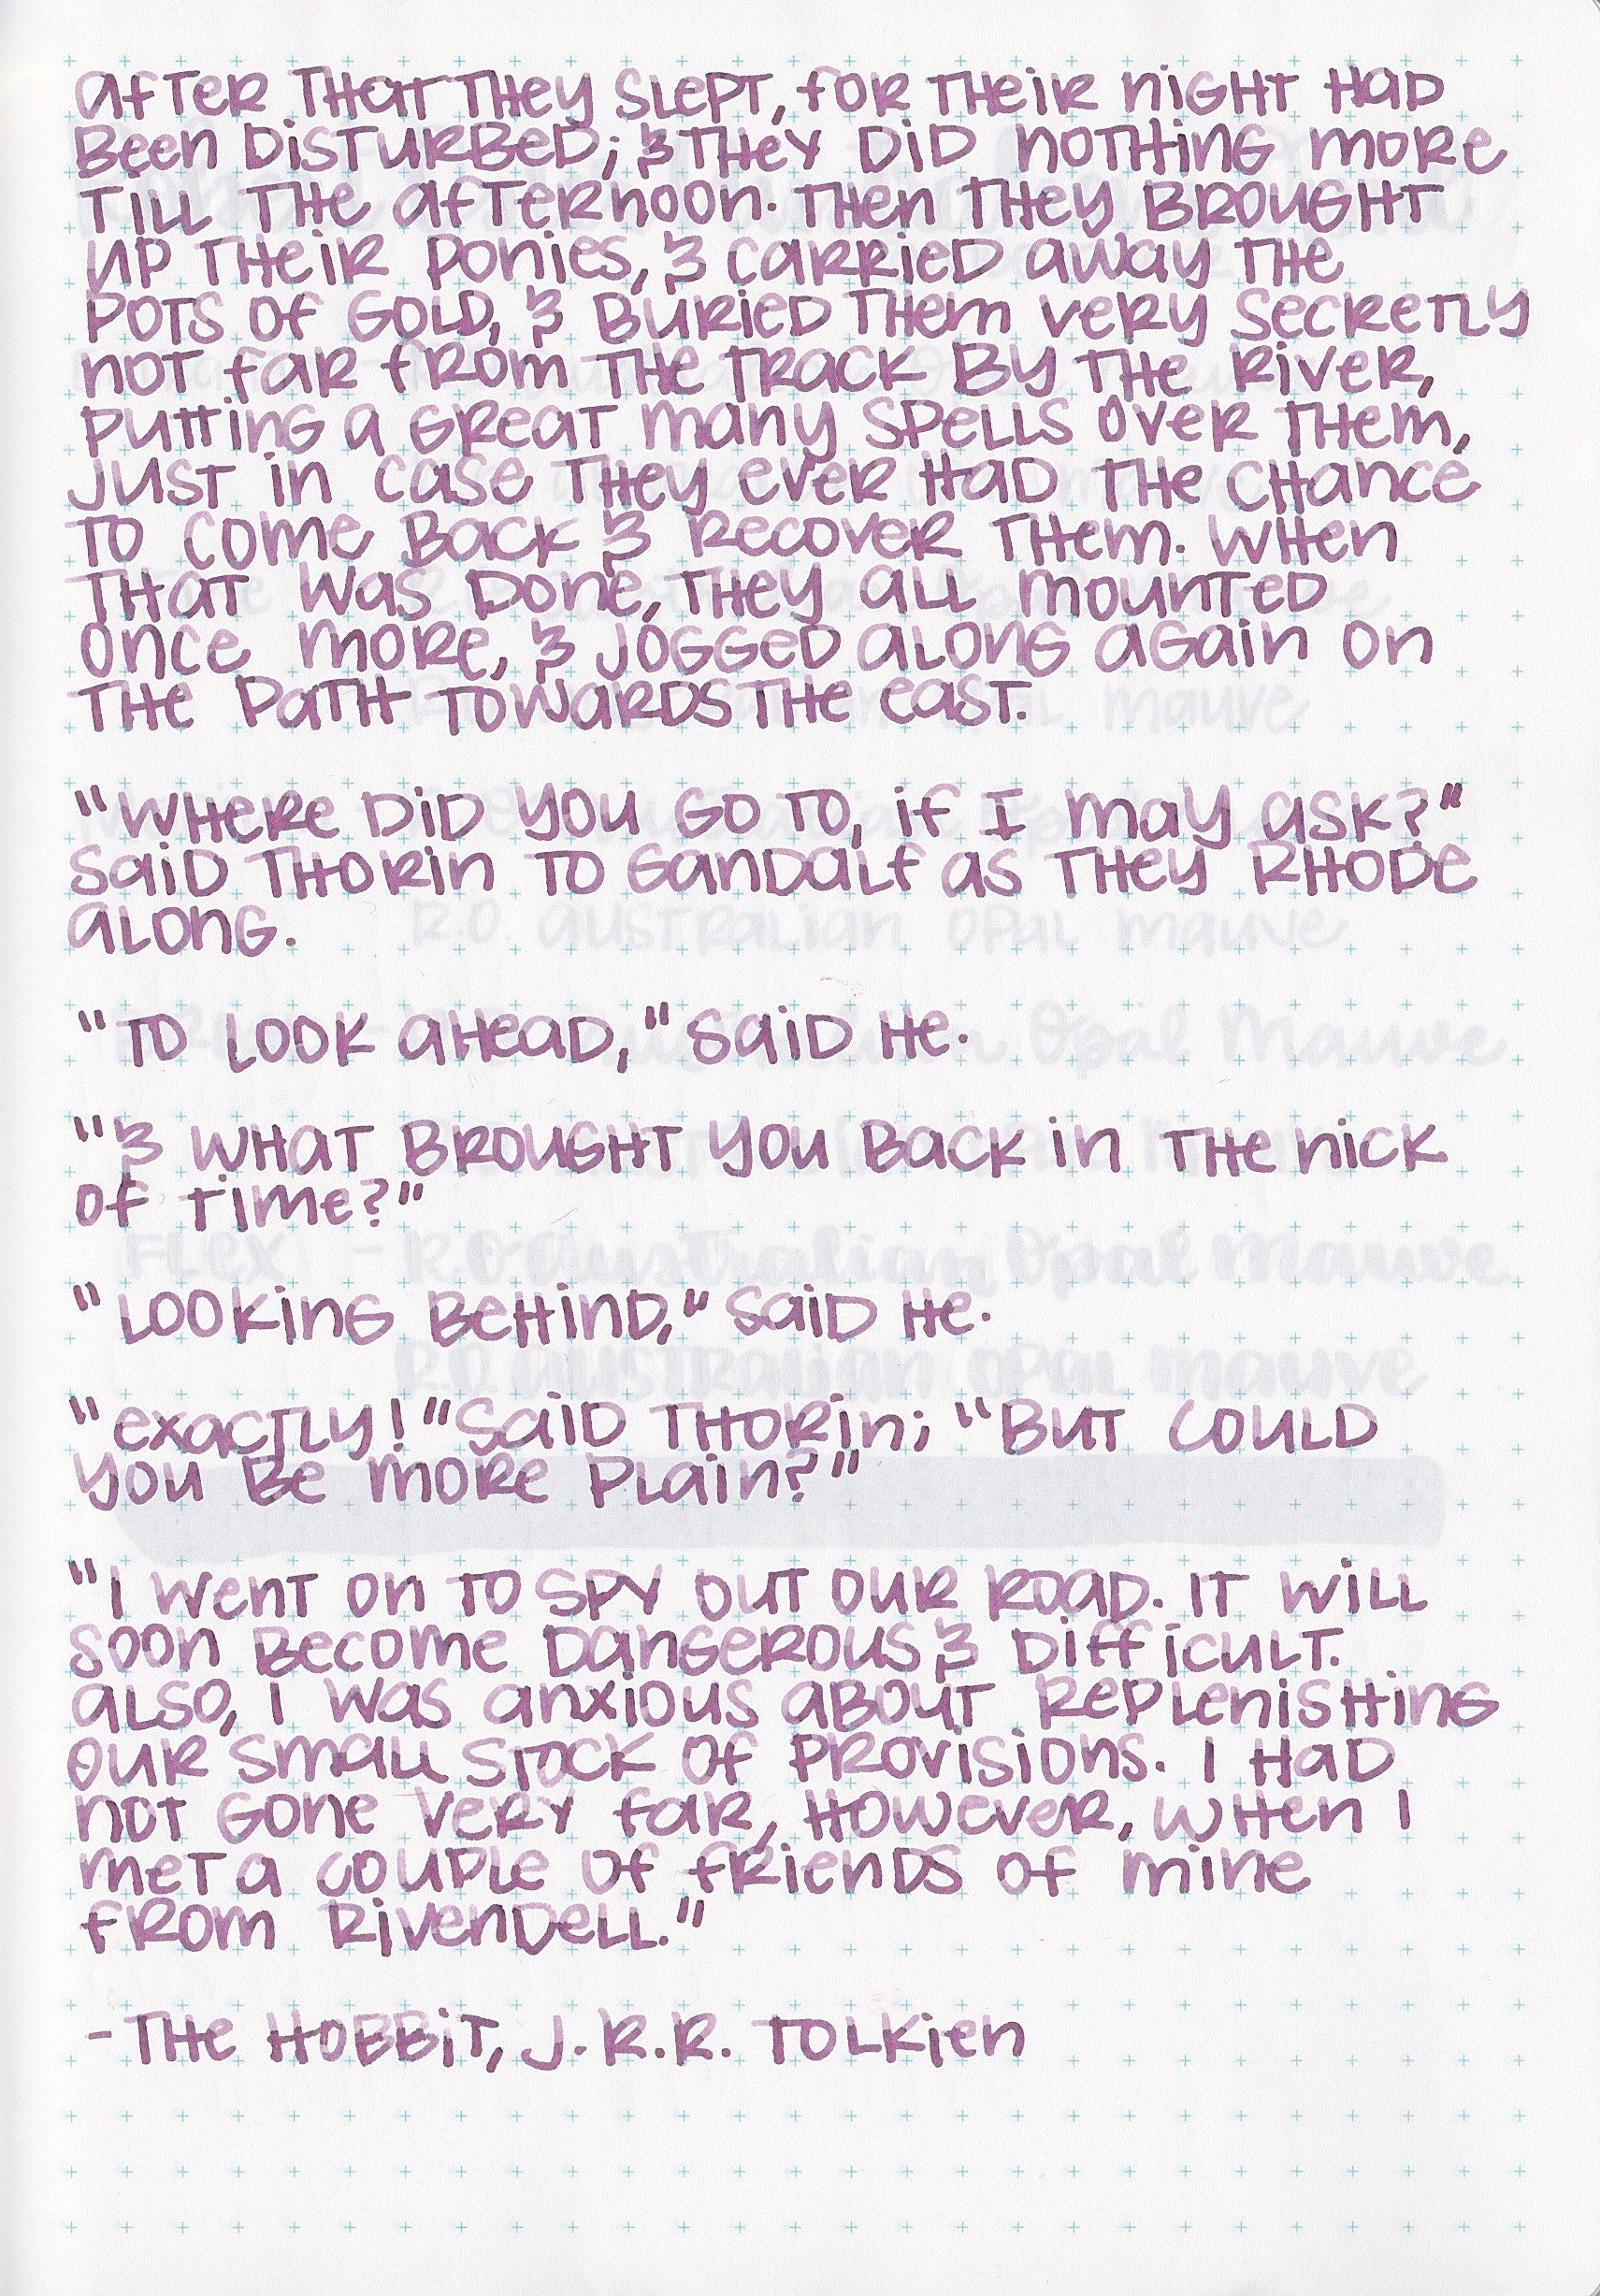 After that they slept, for their night had
been disturbed; & they did nothing more
till the afternoon. Then they brought
up their ponies, & carried away the
pots of gold, & buried them very secretly
not far from the track by the river,
putting a great many spells over them,
just in case they ever had the chance
to come back & recover them. When
that was done, they all mounted
once more, & jogged along again on
the path towards the east.
"Where did you go to, if I may ask?"
said Thorin to Gandalf as they rhode
along.
"To look ahead," said he.
"& what brought you back in the nick
of time?"
"Looking behind," said he.
"Exactly!" said Thorin; "But could
you be more plain?"
"I went on to spy out our road. It will
soon become dangerous & difficult.
Also, I was anxious about replenishing
our small stock of provisions. I had
not gone very far, however, when I
met a couple of friends of mine
from Rivendell."
-The Hobbit, J.R.R. Tolkien